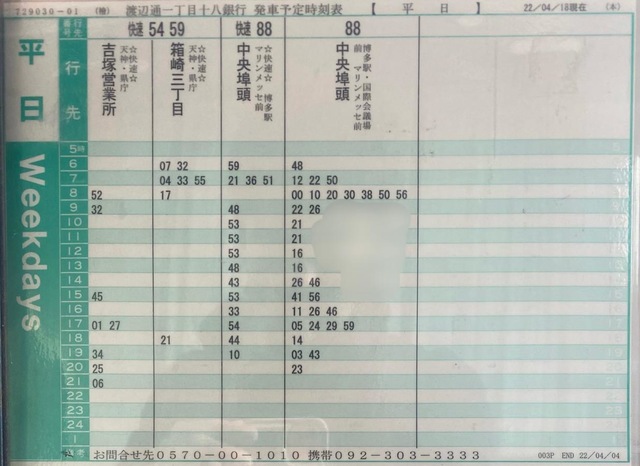 729030-01 (検) 渡辺通一丁目十八銀行 発車予定時刻表 【 平 日 】 22/04/18現在 (本)
行先番号 快速 54 59 快速 88 88
平日
Weekdays
行先
☆快速☆ 天神・県庁 吉塚営業所
☆快速☆ 天神・県庁 箱崎三丁目
☆快速☆ 博多駅 マリンメッセ前 中央埠頭
博多駅・国際会議場前 マリンメッセ前 中央埠頭
5時
6 07 32 59 48
7 04 33 55 21 36 51 12 22 50
8 52 17 00 10 20 30 38 50 56
9 32 48 22 26
10 53 21
11 53 21
12 53 16
13 48 16
14 43 26 46
15 45 53 41 56
16 33 11 26 46
17 01 27 54 05 24 29 59
18 21 44 14
19 34 10 03 43
20 25 23
21 06
22
23
24
1
備考 お問合せ先0570-00-1010 携帯092-303-3333 003P END 22/04/04